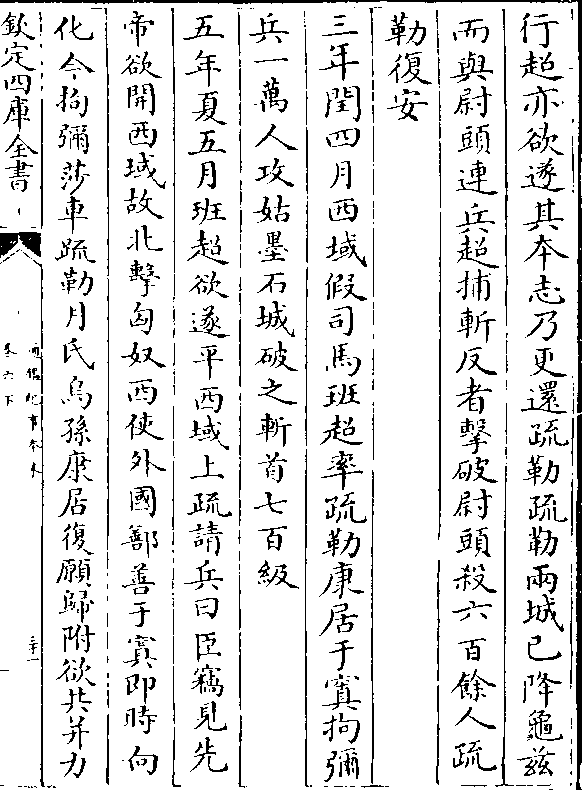 行超亦欲遂其本志乃更還疏勒疏勒兩城已降龜兹
而與尉頭連兵超捕斬反者擊破尉頭殺六百餘人疏
勒復安
三年閏四月西域假司馬班超率疏勒康居于窴拘彌
兵一萬人攻姑墨石城破之斬首七百級
五年夏五月班超欲遂平西域上疏請兵曰臣竊見先
帝欲開西域故北擊匈奴西使外國鄯善于窴即時向
化今拘彌莎車疏勒月氏烏孫康居復願歸附欲共并力
欽定四庫全書
通鑑紀事本末
卷六下
三十一